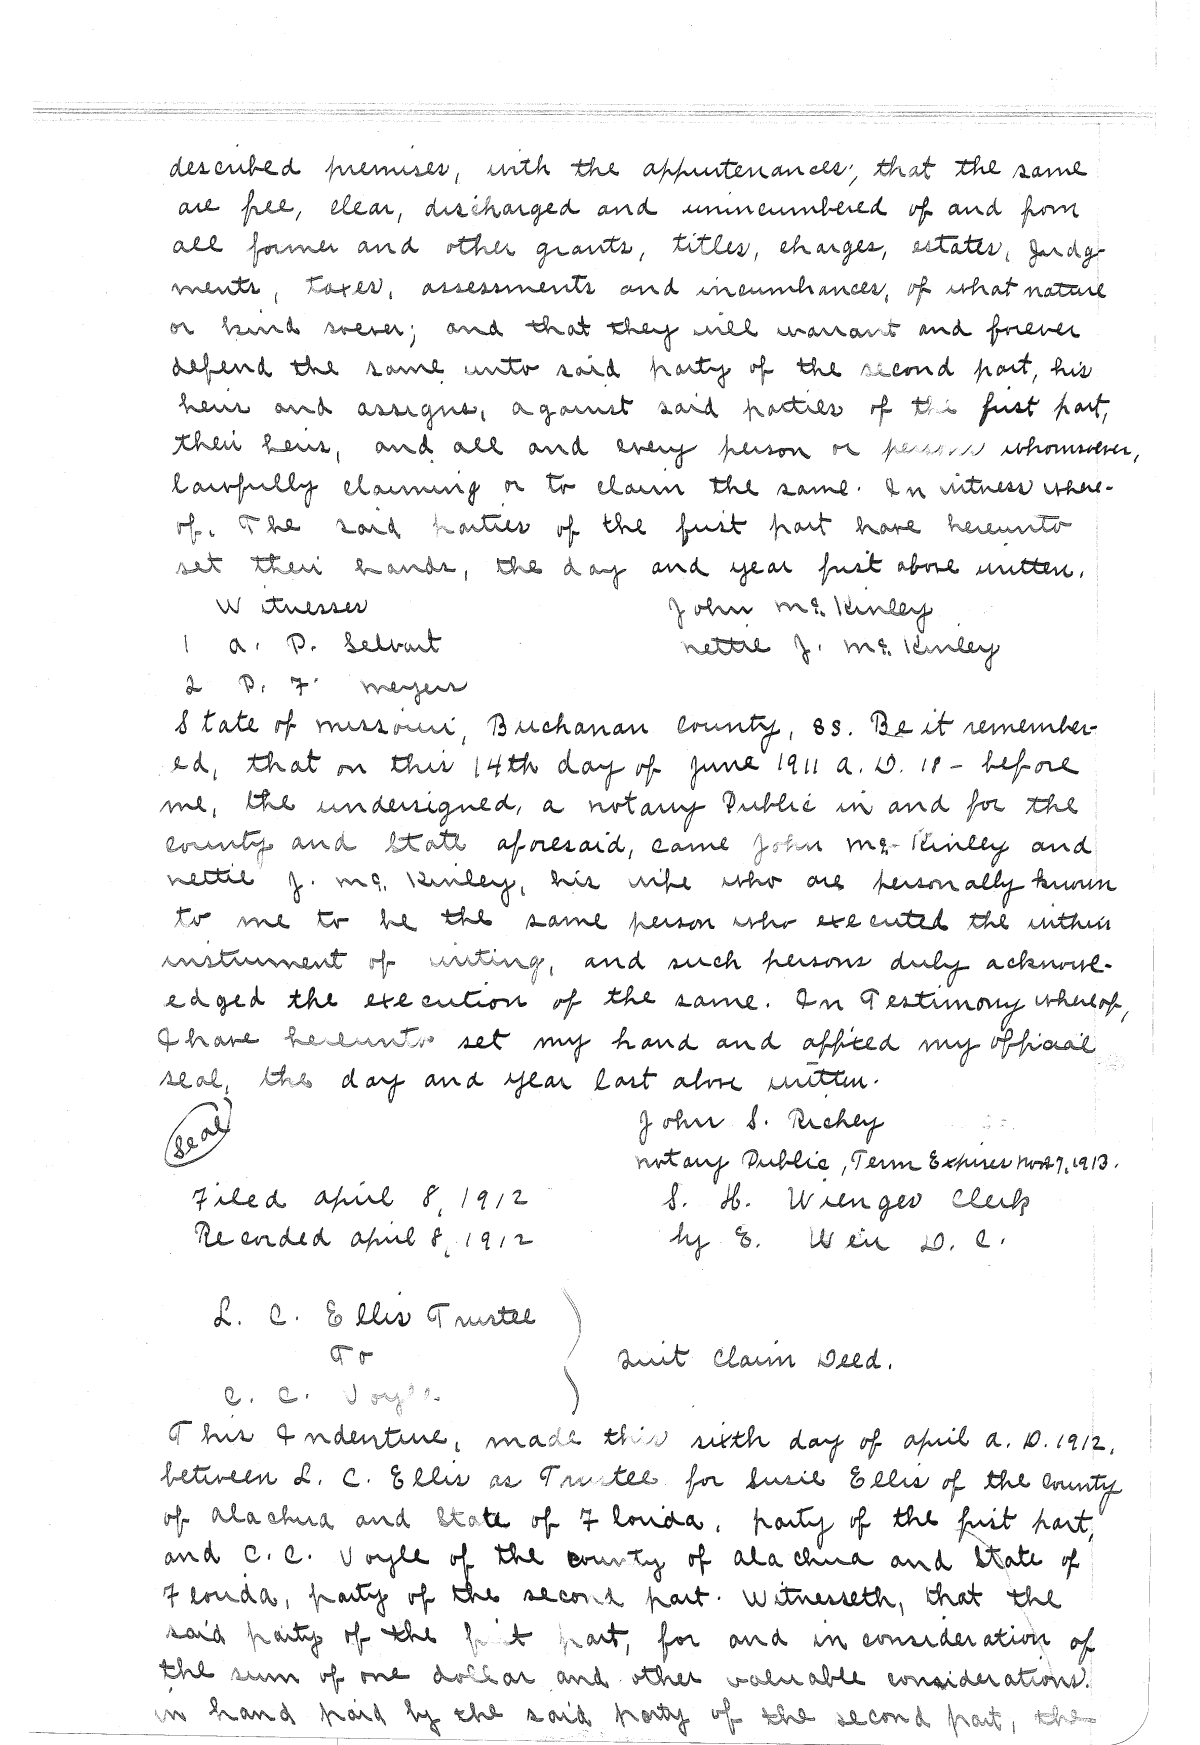 described premises, with the appurtenances; that the same
are free, clear, discharged and unincumbered of and from
all former and other grants, titles, charges, estates, judg-
ments, taxes, assessments and incumbrances, of what nature
or kind soever; and that they will warrant and forever
defend the same unto said party of the second part, his
heirs and assigns, against said parties of the first part,
their heirs, and all and every person or persons whomsoever,
lawfully claiming or to claim the same. In witness where-
of. The said parties of the first part have hereunto
set their hands, the day and year first above written.
Witnesses John McKinley
1 A. P. Nettie J. McKinley
2 P. F. Meyers
State of Missouri, Buchanan County, SS. Be it remember-
ed, that on this 14th day of June 1911 A. D. 18- before
me, the undersigned, a notary Public in and for the
county and State aforesaid, came John McKinley and
Nettie J. McKinley, his wife who are personally known
to me to be the same person who executed the within
instrument of writing, and such persons duly acknowl-
edged the execution of the same. In Testimony whereof,
I have hereunto set my hand and affixed my official
seal, the day and year last above written.
Seal John S. Richey
Notary Public, Term Expires Nov 27, 1913.
Filed April 8, 1912 S. H. Wienges Clerk
Recorded April 8, 1912 by E. Weir D. C.
L. C. Ellis Trustee
To Quit Claim Deed.
C. C. Voyle
This Indenture, made this sixth day of April A. D. 1912,
between L. C. Ellis as Trustee for Susie Ellis of the County
of Alachua and State of Florida, party of the first part,
and C. C. Voyle of the County of Alachua and State of
Florida, party of the second part. Witnesseth, that the
said party of the first part, for and in consideration of
the sum of one dollar and other valuable considerations.
in hand paid by the said party of the second part, the